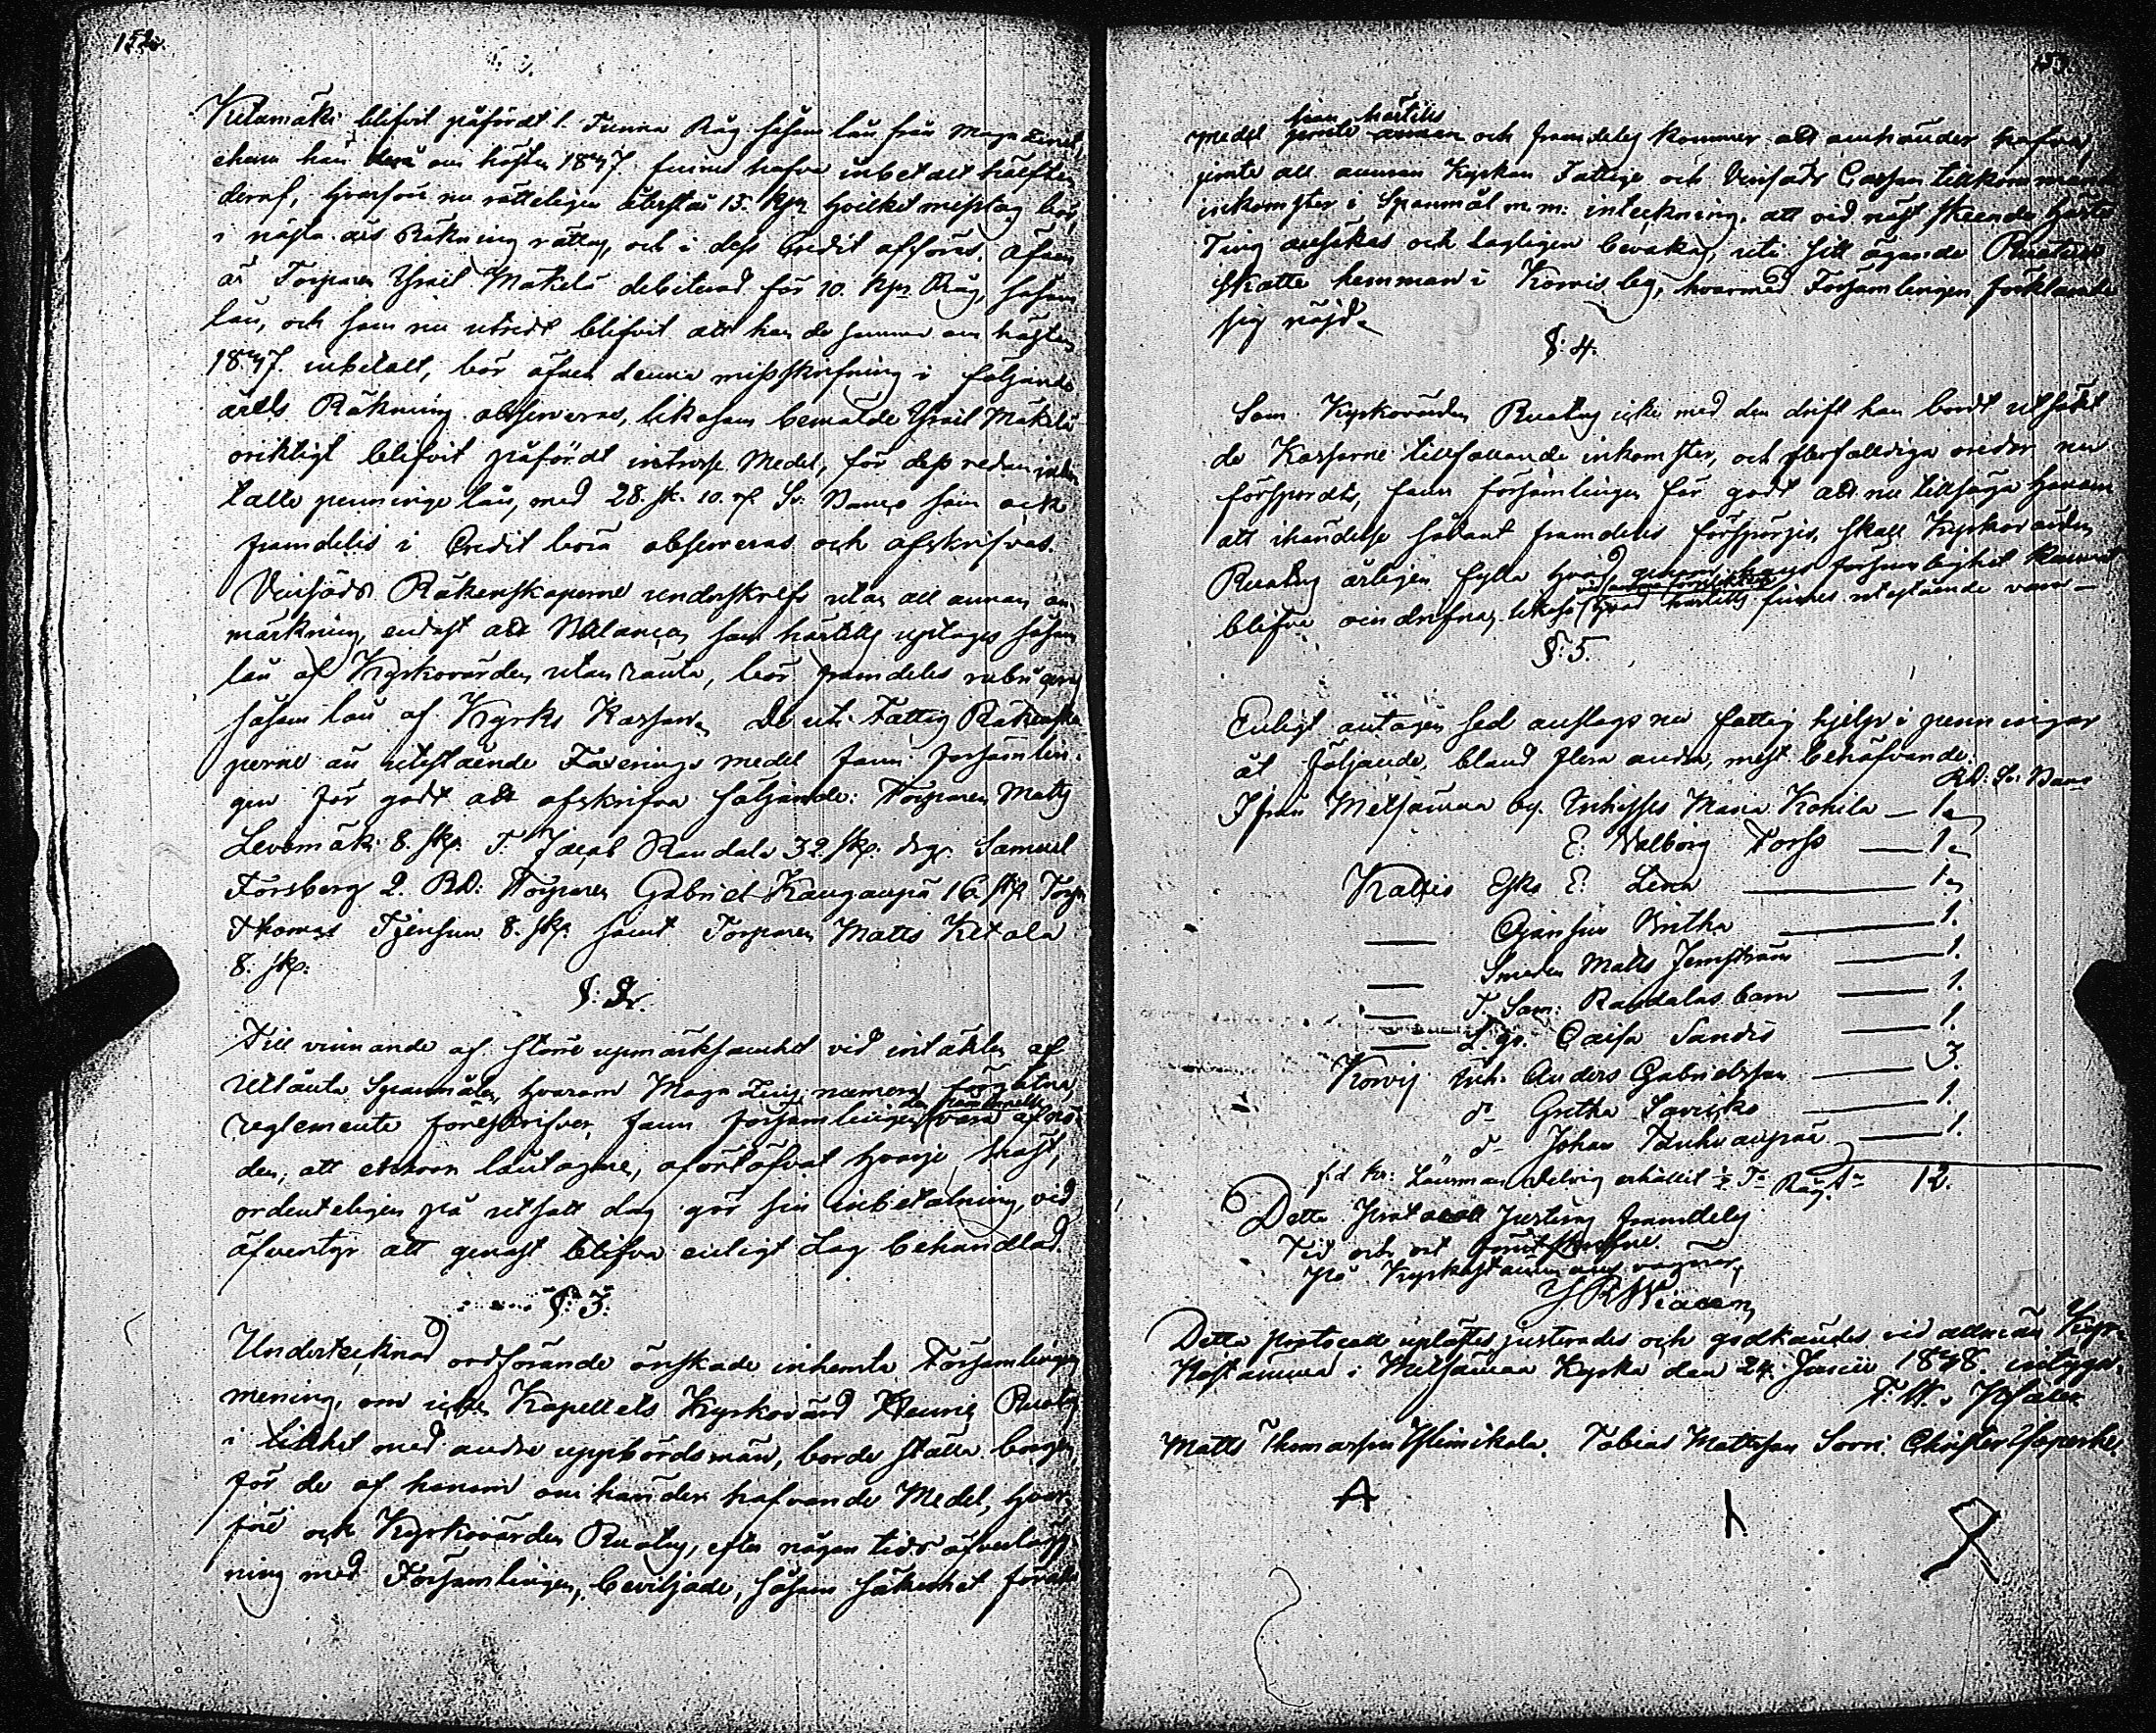 152.
Ketamäki blifvit påfördt 1. Tunna Råg såsom lån från Magazinet,
ehuru han om hösten 1847 finnes hafva inbetalt hälften
deraf, hvarföre nu rätteligen återstår 15. kpr hvilket misstag bör,
i nästa års Räkning rättas, och i dess Credit afföras. Äfven
är Torparen Israel Mäkelä debiterad för 10. kpr Råg, såsom
lån, och som nu utredt blifvit att han de samma om hösten
1847. inbetalt, bör äfven denna misskrifning i följande
årets Räkning observeras, likasom bemälde Israel Mäkelä
oriktigt blifvit påfördt intresse Medel, för dess redan inbe
talte penninge lån, med 28. sk. 10. rf Sv. Banco som ock
framdeles i Credit böra observeras och afskrifvas.
Vinfäds Räkenskaperne underskrefs utan all annan an
märkning, endast att Balancen som härtills uptages såsom
lån af Kyrkovärden utan ränta, bör framdeles rubriceras
såsom lån af Kyrko Kassan. De uti Fattig Räkenska
perne än utestående Taxerings medel fann Församlin-
gen för godt att afskrifva följande: Torparen Matts
Levomäki 8. sk. T. Jacob Randala 32. sk. drg. Samuel
Forsberg 2. RD: Torparen Gabriel Kanganpä 16. sk Torp.
Thomas 8. sk. samt Torparen Matts Ketola
8. sk.
§: 2.
Till vinnande af större upmärksamhet vid intäkten af
utlånta Spanmålen, hvarom Magazins
reglemente föreskrifver, fann församlingen vara af nö-
den, att hvar låntagare, oförtöfvat hvarje höst,
ordenteligen på utsatt dag gör sin inbetalning, vid
äfventyr att genast blifva enligt Lag behandlad.
§: 3.
Undertecknad ordförande önskade inhemta Församlingens
mening, om icke Kapellets Kyrkovärd Ruotus
i likhet med andre uppbördsmän, borde ställa borgen,
för de af honom om händer hafvande Medel, hvar-
före och Kyrkovärden Ruotus, efter någon tids öfverlägg-
ning med Församlingen, beviljade, såsom säkerhet för de
153.
han härtills
medel och framdeles kommer att omhänder hafva,
jemte all annan Kyrkan Fattige och Vinfäds Cassan tillkommande
inkomster i Spanmål m.m: inteckning. att vid näst skeende Höste
Ting ansökas och lagligen bevakas, uti sitt ägande Ruotus
skatte hemman i Korvis by, hvarmed Församlingen förklarade
sig nöjd.
§: 4.
Som Kyrkovärden Ruotus icke med den drift han bordt utsökt
de Kassorne tillfallande inkomster, och flerfalldiga oredor nu
försports, fann församlingen för godt att nu tillsäga honom
att ihändelse sådant framdeles förspörjes, skall Kyrkovärden
Ruotus årligen fylla hvad genom hans försumlighet kunnat
blifva oindrifna, likaså hvad härtills finnes utestående vara
§: 5.
Enligt antagen sed anslags nu fattig hjelp i penningar
åt följande, bland flera andra, mest behöfvande:
RD: Sv: Banco
Ifrån Metsämaa by. Inhyses Maria Kokila — 1.
E. Walborg Torps — 1.
Kallis Enka E. Lena — 1.
— Ojansuu Britha — 1.
— Smeden Matts Jernström — 1.
— T. Sam: Randalas barn — 1.
— Caisa Sandis — 1.
Korvis Inh. Anders Gabrielsson — 3.
do Gretha — 1.
do Johan Tanhuanpää — 1.
f.d kr: Länsman Selvig erhållit ½ Ta Råg. Sa 12.
Detta Protocoll Justeras framdeles
Tid och ort
på Kyrkostämmans vägnar,
Detta protocoll uplästes, justerades och godkändes vid allmän Kyr-
kostämma i Metsämaa Kyrka den 24. Junii 1848, intygar
Matts Thomasson Tobias Mattsson Sorri Christer